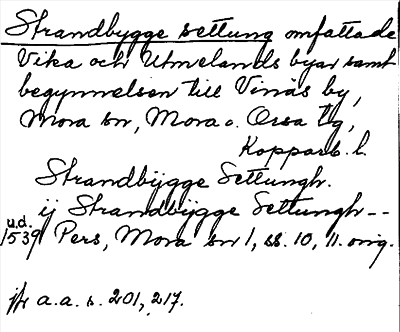 Strandbygge settung omfattade
Vika och Utmelands byar samt
begynnelsen till Vinäs by,
Mora sn, Mora o. Orsa tg,
Kopparb. l.
Strandbÿgge Settungh.
ij Strandbÿgge Settungh --
u.d. 1539 Pers, Mora sn 1, ss. 10, 11. orig.
jfr a.a. s. 201, 217.